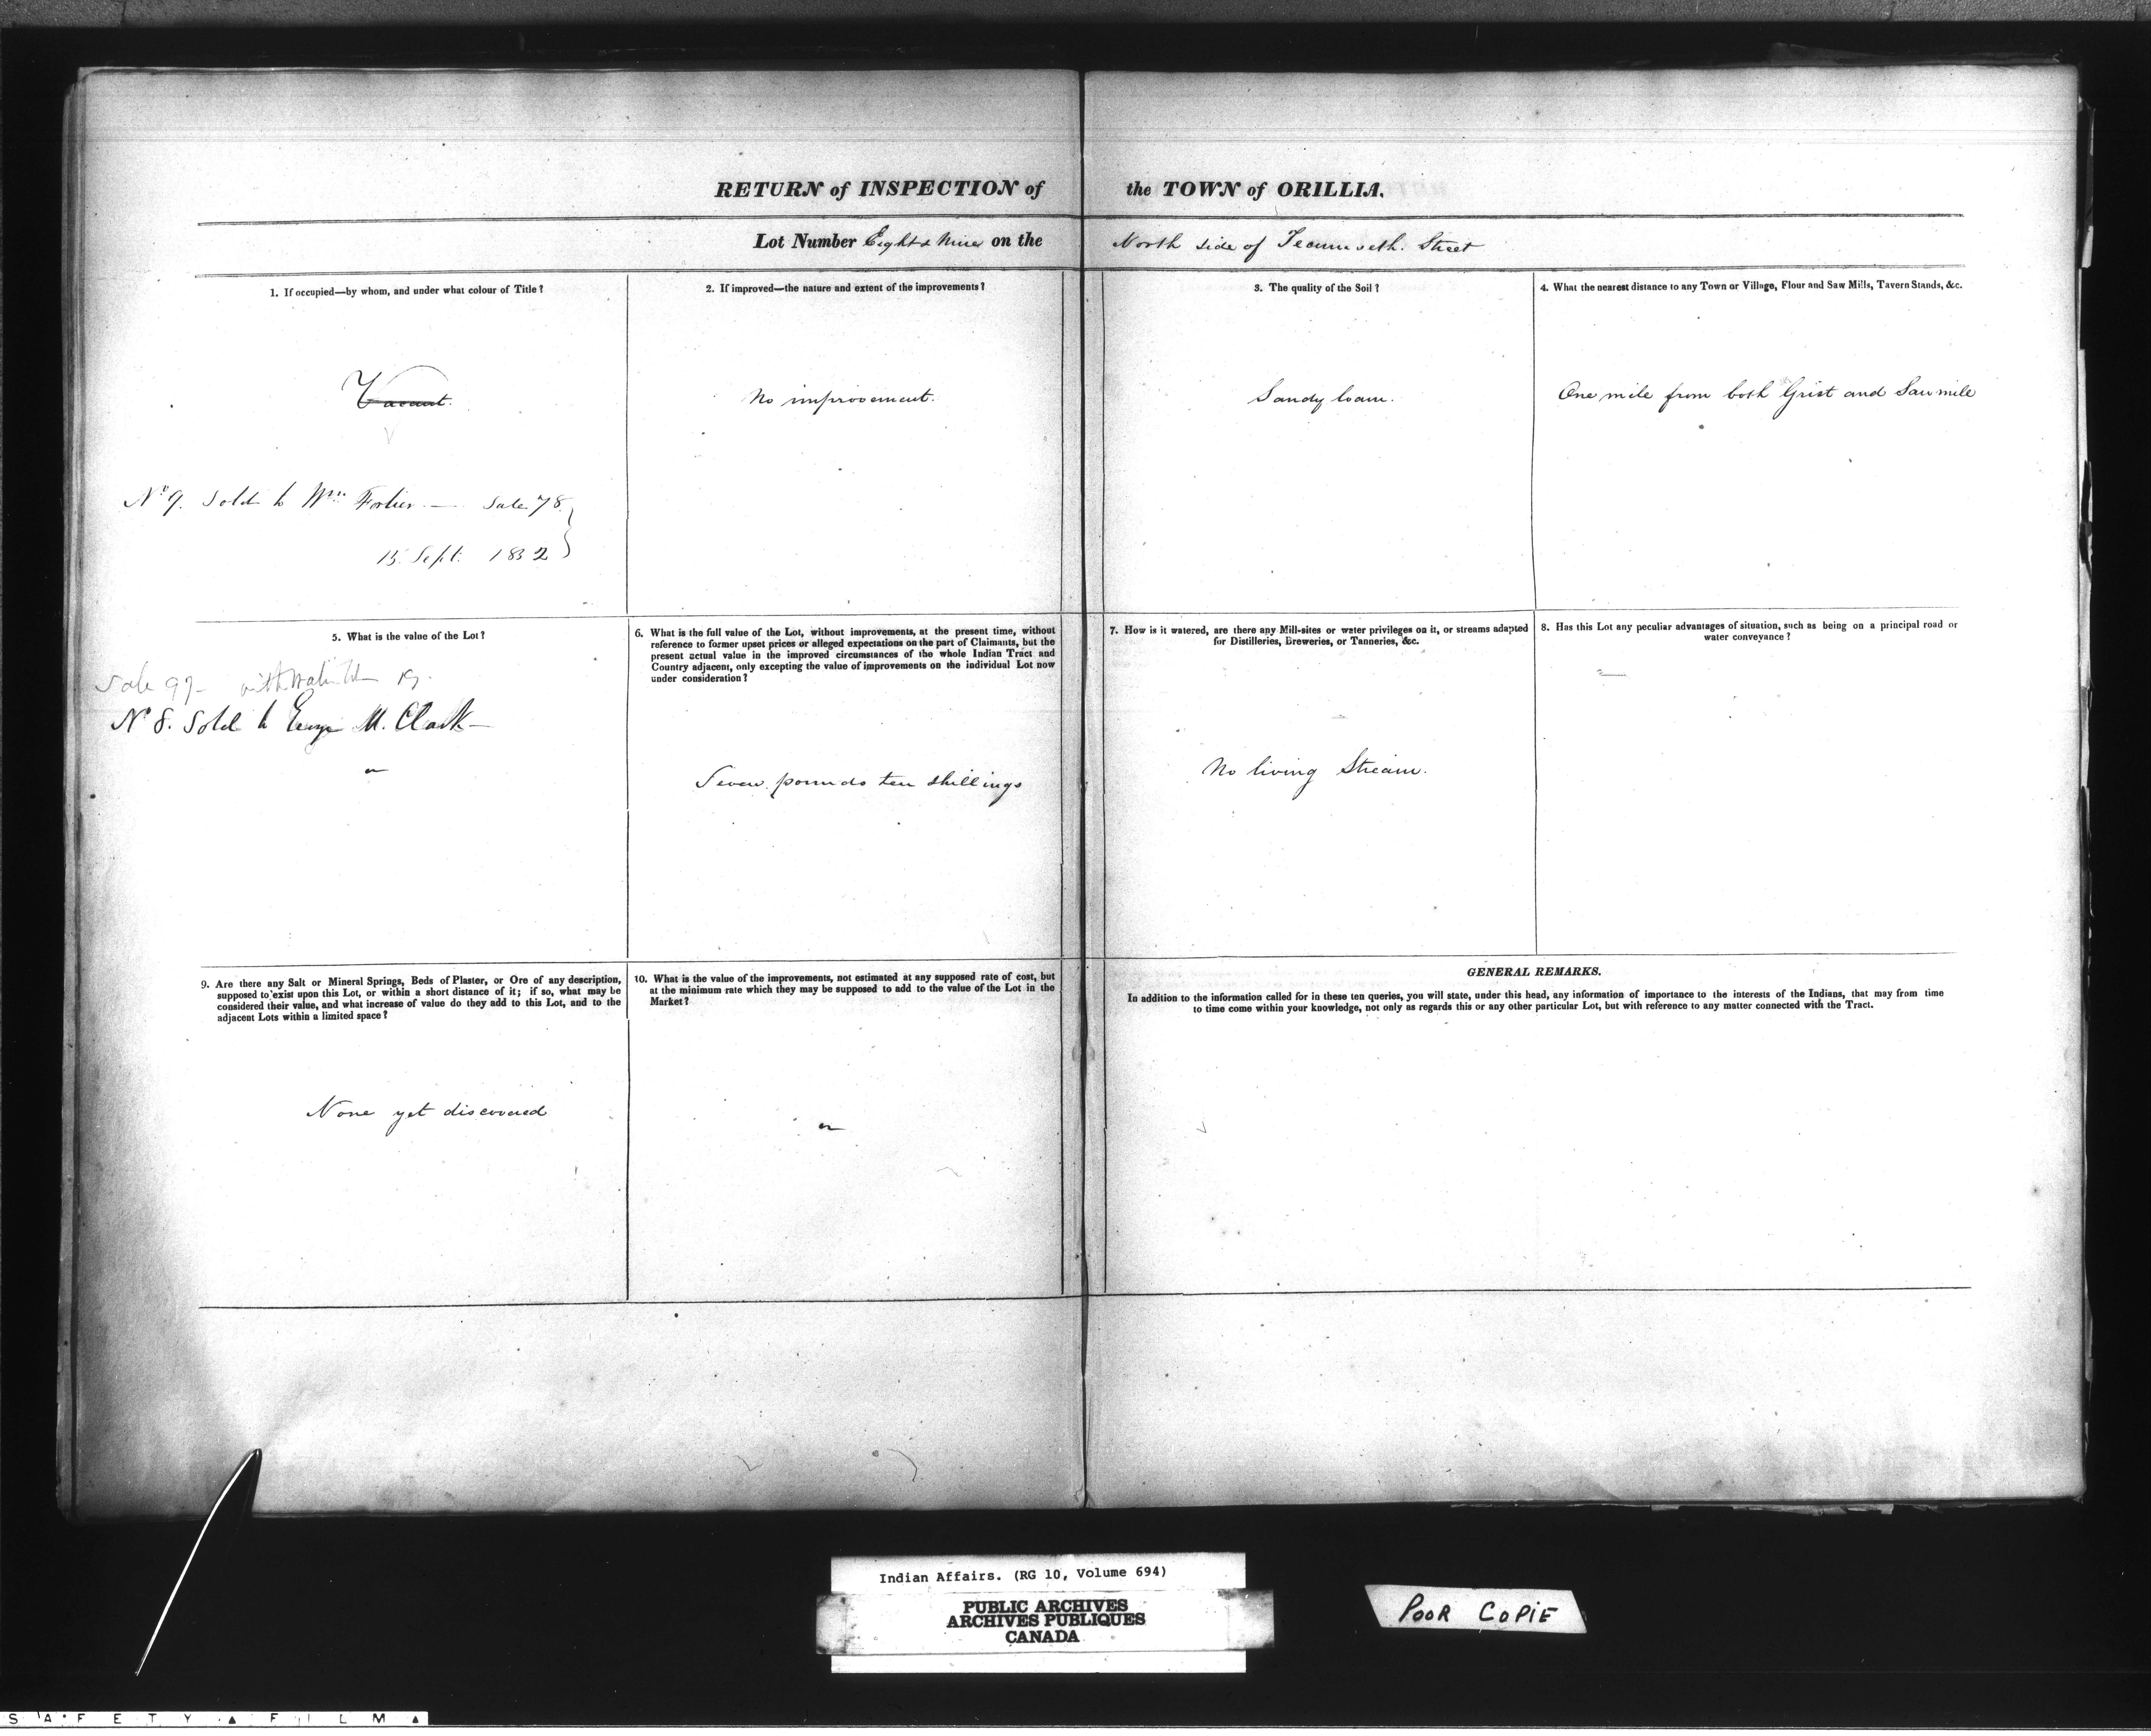 RETURN of INSPECTION of the TOWN of ORILLIA.
Lot Number Eight & Nine on the North side of Tecumseth. Street
1. If occupied—by whom, and under what colour of Title?
Vacant.
No 9. Sold to Wm Fortier — Sale 78
15 Sept. 1832
2. If improved—the nature and extent of the improvements?
No improvement.
3. The quality of the Soil?
Sandy loam.
4. What the nearest distance to any Town or Village, Flour and Saw Mills, Tavern Stands, &c.
One mile from both Grist and Saw mile
5. What is the value of the Lot?
Sale 97
No 8. Sold to George M. Clark —
6. What is the full value of the Lot, without improvements, at the present time, without
reference to former upset prices or alleged expectations on the part of Claimants, but the
present actual value in the improved circumstances of the whole Indian Tract and
Country adjacent, only excepting the value of improvements on the individual Lot now
under consideration?
Seven pounds ten shillings
7. How is it watered, are there any Mill-sites or water privileges on it, or streams adapted
for Distilleries, Breweries, or Tanneries, &c.
No living Stream.
8. Has this Lot any peculiar advantages of situation, such as being on a principal road or
water conveyance?
9. Are there any Salt or Mineral Springs, Beds of Plaster, or Ore of any description,
supposed to exist upon this Lot, or within a short distance of it; if so, what may be
considered their value, and what increase of value do they add to this Lot, and to the
adjacent Lots within a limited space?
None yet discovered
10. What is the value of the improvements, not estimated at any supposed rate of cost, but
at the minimum rate which they may be supposed to add to the value of the Lot in the
Market?
GENERAL REMARKS.
In addition to the information called for in these ten queries, you will state, under this head, any information of importance to the interests of the Indians, that may from time
to time come within your knowledge, not only as regards this or any other particular Lot, but with reference to any matter connected with the Tract.
Indian Affairs. (RG 10, Volume 694)
PUBLIC ARCHIVES
ARCHIVES PUBLIQUES
CANADA
POOR COPIE
SAFETY FILM